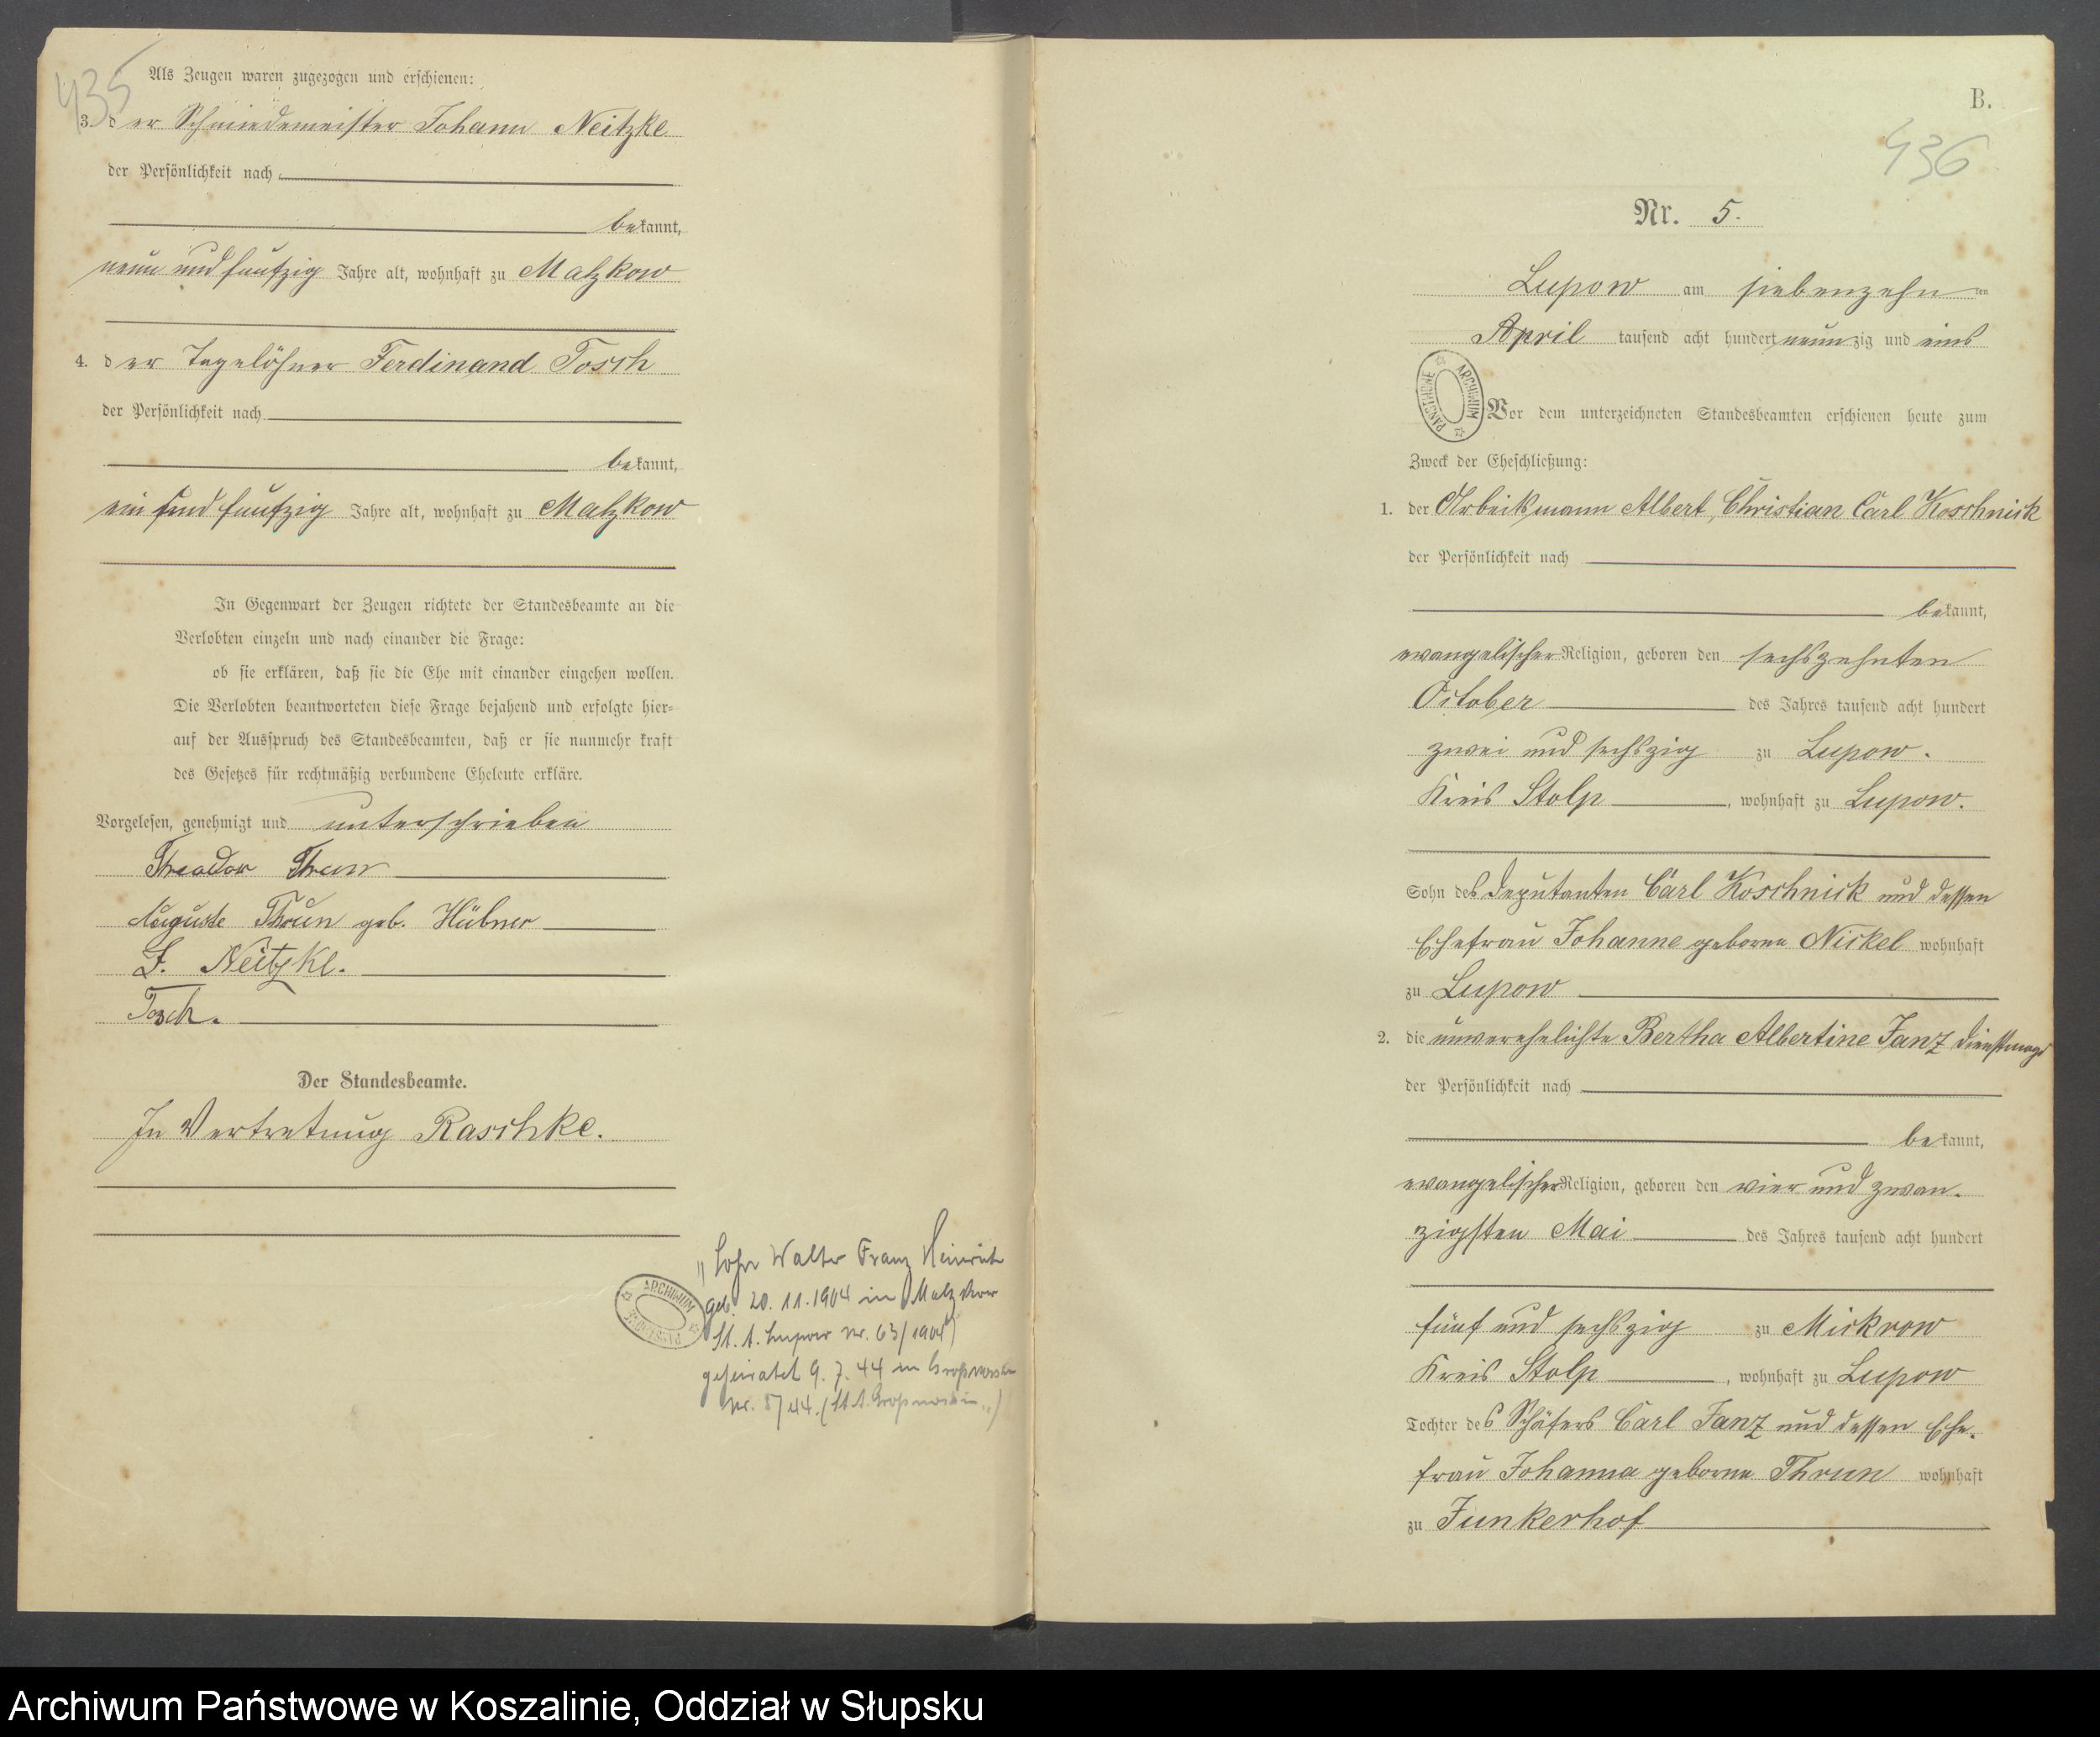 435
Als Zeugen waren zugezogen und erschienen:
3. der Schmiedemeister Johann Neitzke
der Persönlichkeit nach
bekannt,
neun und funfzig Jahre alt, wohnhaft zu Malzkow
4. der Tagelöhner Ferdinand Tosch
der Persönlichkeit nach
bekannt,
ein und funfzig Jahre alt, wohnhaft zu Malzkow
In Gegenwart der Zeugen richtete der Standesbeamte an die
Verlobten einzeln und nach einander die Frage:
ob sie erklären, daß sie die Ehe mit einander eingehen wollen.
Die Verlobten beantworteten diese Frage bejahend und erfolgte hier-
auf der Ausspruch des Standesbeamten, daß er sie nunmehr kraft
des Gesetzes für rechtmäßig verbundene Eheleute erkläre.
Vorgelesen, genehmigt und unterschrieben
Theodor Thrun
Auguste Thrun geb. Hübner
J. Neitzke.
Tosch.
Der Standesbeamte.
In Vertretung Raschke.
"Sohn Walter Franz Heinrich
geb. 20. 11. 1904 in Malzkow
St. A. Lupow Nr. 63/1904)
geheiratet 9. 7. 44 in
Nr. 8/44. (St. A.
ARCHIWUM PAŃSTWOWE
B.
436
Nr. 5.
Lupow am siebenzehnten
April tausend acht hundert neunzig und eins
ARCHIWUM PAŃSTWOWE
Vor dem unterzeichneten Standesbeamten erschienen heute zum
Zweck der Eheschließung:
1. der Arbeitsmann Albert, Christian Carl Koschnick
der Persönlichkeit nach
bekannt,
evangelischer Religion, geboren den sechszehnten
October des Jahres tausend acht hundert
zwei und sechszig zu Lupow.
Kreis Stolp, wohnhaft zu Lupow.
Sohn des Deputanten Carl Koschnick und dessen
Ehefrau Johanne geborne Nickel wohnhaft
zu Lupow
2. die unverehelichte Bertha Albertine Janz Dienstmagd
der Persönlichkeit nach
bekannt,
evangelischer Religion, geboren den vier und zwan-
zigsten Mai des Jahres tausend acht hundert
fünf und sechszig zu Mickrow
Kreis Stolp, wohnhaft zu Lupow
Tochter des Schäfers Carl Janz und dessen Ehe-
frau Johanna geborne Thrun wohnhaft
zu Junkerhof
Archiwum Państwowe w Koszalinie, Oddział w Słupsku